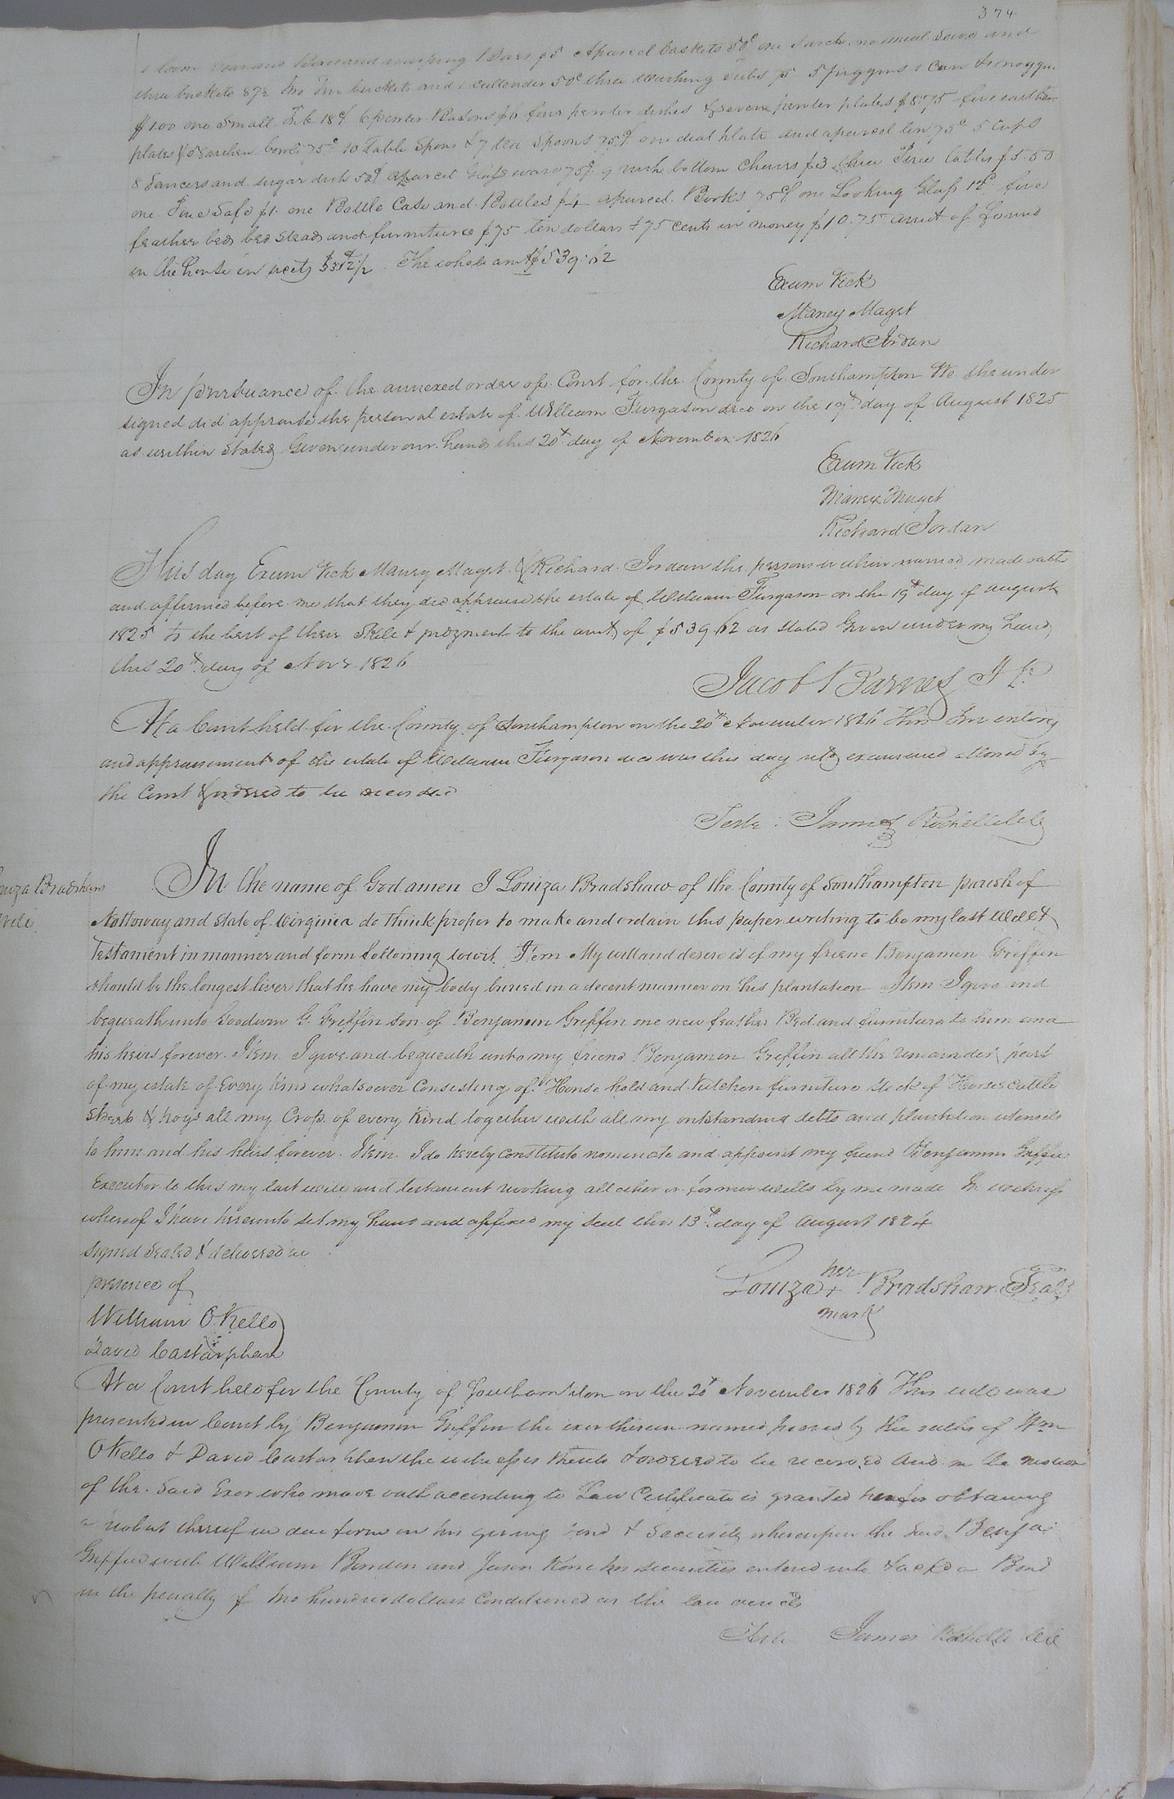 374
1 loom various and warping bars $5 a parcel baskets 50c one meal and
three baskets 87c two tin buckets and 1 cullender 50c three washing tubs 5 piggins 1 can & noggin
$1.00 one small Tub 18c 6 pewter Basons $6 four pewter dishes & seven pewter plates $8.75 five earthen
plates & earthen bowls 75c 10 table Spoons & 7 tea Spoons 75c one deal plate and a parcel tin 75c 5 cups
8 Saucers and sugar dish 50c a parcel Glass ware 75c 9 rush bottom chairs $3 three Pine tables $5.50
one Pine Safe $1. one Bottle Case and Bottles $4 a parcel Books 75c one Looking Glass 12c five
feather beds bed steads and furniture $75 ten dollars & 75 cents in money $10.75 amt of found
in the house in The whole amt $539.62
Exum Vick
Maney Maget
Richard Jordan
In pursuance of the annexed order of Court for the County of Southampton We the under
signed did appraise the personal estate of William Furgason decd on the 19th day of August 1825
as within stated Given under our hands this 20th day of November 1826
Exum Vick
Maney Maget
Richard Jordan
This day Exum Vick Maney Maget & Richard Jordan the persons within named made oath
and affirmed before me that they did appraise the estate of William Furgason on the 19th day of August
1825 to the best of their Skill & judgment to the amt of $539.62 as stated Given under my hand
this 20th day of Novr 1826
Jacob Barnes J P.
At a Court held for the County of Southampton on the 20th November 1826 This Inventory
and appraisement of the estate of William Furgason decd was this day retd examined allowed by
the Court & ordered to be recorded
Teste James Rochelle Clk
Bradshaws
Will
In the name of God amen I Louiza Bradshaw of the County of Southampton parish of
Nottoway and State of Virginia do think proper to make and ordain this paper writing to be my last Will &
Testament in manner and form following towit Item My will and desire is if my friend Benjamin Griffin
should be the longest liver that he have my body buried in a decent manner on his plantation Item I give and
bequeath unto Goodwin G. Griffin son of Benjamin Griffin one new feather Bed and furniture to him and
his heirs forever. Item I give and bequeath unto my friend Benjamin Griffin all the remainder part
of my estate of Every kind whatsoever Consisting of House hold and kitchen furniture stock of Horses cattle
sheep & hogs all my Crop of every kind together with all my outstanding debts and plantation utensils
to him and his heirs forever. Item I do hereby constitute nominate and appoint my friend Benjamin Griffin
Executor to this my last will and testament revoking all other or former wills by me made In witness
whereof I have hereunto set my hand and affixed my seal this 13th day of August 1824
signed sealed & delivered in
presence of
her
Louiza + Bradshaw Seal
mark
William O Kello
David Castarphen
At a Court held for the County of Southampton on the 20th November 1826 This will was
presented in Court by Benjamin Griffin the exor therein named proved by the oaths of Wm
O Kello & David Castarphen the witnesses thereto & ordered to be recorded And on the motion
of the said Exor who made oath according to Law Certificate is granted him for obtaining
a probat thereof in due form on his giving bond & security whereupon the said Benja
Griffin with William and his securities entered into & ackd a Bond
in the penalty of two hundred dollars Conditioned as the law directs
Teste James Rochelle Clk